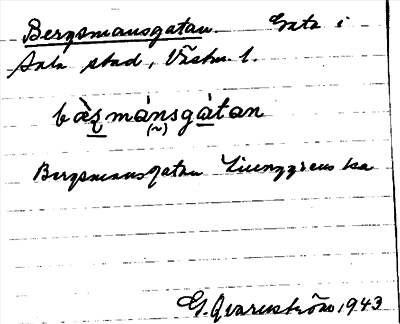 Bergsmansgatan. Gata i
Sala stad, Västm. l.
bàs̠mánsgà̠tan
(~)
Bergsmansgatan Ljunggrens ka
G. Qvarnström 1943